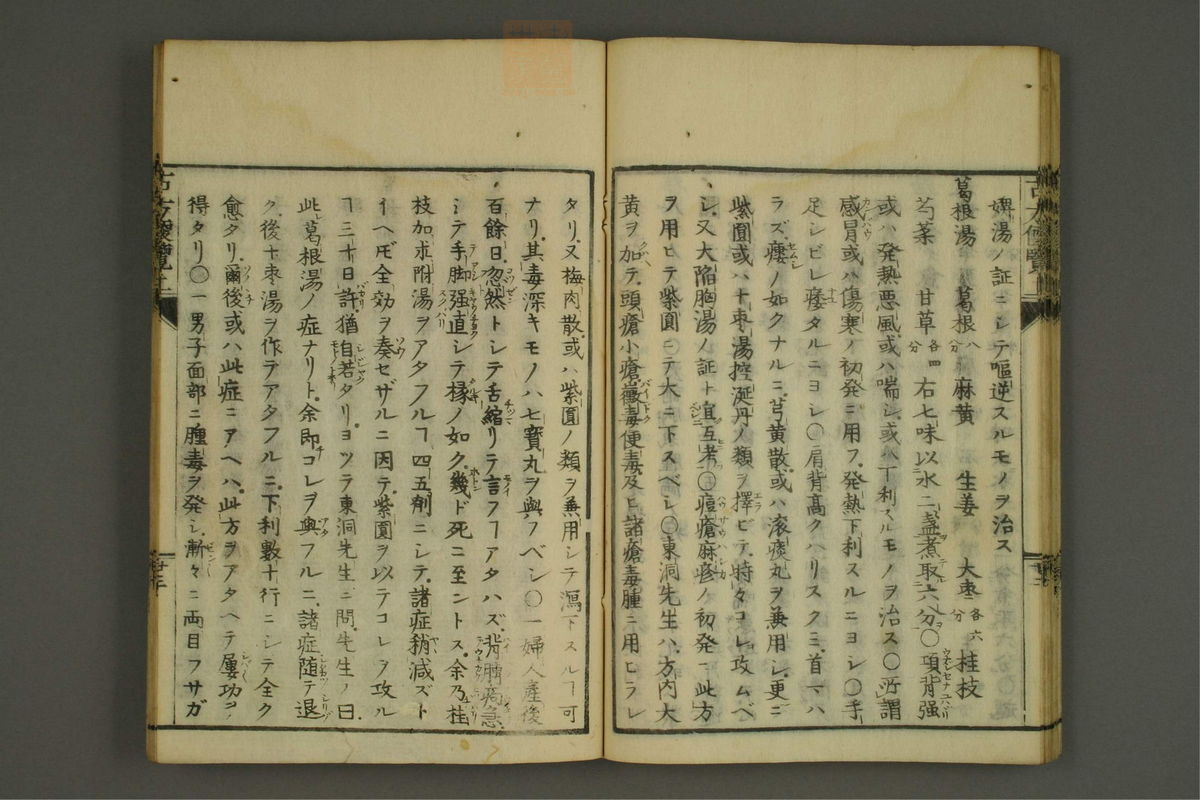 婢湯ノ証ニシテ嘔逆スルモノヲ治ス
葛根湯 葛根八 麻黄 生姜 大棗各六分 桂枝
芍薬 甘草各四分 右七味以水二盞煮取六分○項背强
或ハ発熱悪風或ハ喘シ或ハ下利スルモノヲ治ス○所謂
感冒或ハ傷寒ノ初発ニ用フ発熱下利スルニヨシ○手
足シビレ痿タルニヨシ○肩背髙クハリスクミ首マハ
ラズ瘻ノ如クナルニ芎黄散或ハ滚痰丸ヲ兼用シ更ニ
紫圓或ハ十枣湯控涎丹ノ類ヲ擇ビテ時々コレヲ攻ムベ
シ又大陥胸湯ノ証ト宜互考○痘瘡麻疹ノ初発一此方
ヲ用ヒテ紫圓ニテ大ニ下スベシ○東洞先生ハ方内大
黄ヲ加テ頭瘡小瘡黴毒便毒及ヒ諸瘡毒腫ニ用ヒラレ
タリ又梅肉散或ハ紫圓ノ類ヲ兼用シテ瀉下スルヿ可
ナリ其毒深キモノハ七寳丸ヲ與フベシ○一婦人産後
百餘日忽然トシテ舌縮リテ言フヿアタハズ背
シテ手脚强直シテ椽ノ如ク幾ド死ニ至ントス余乃桂
枝加朮附湯ヲアタフルヿ四五劑ニシテ諸症稍減ズト
イヘ𪜈全効ヲ奏セザルニ因テ紫圓ヲ以テコレヲ攻ル
ヿ三十日許猶自若タリヨツテ東洞先生ニ問先生ノ曰
此葛根湯ノ症ナリト余即コレヲ與フルニ諸症随テ退
ク後十枣湯ヲ作テアタフルニ下利數十行ニシテ全ク
愈タリ爾後或ハ此症ニアヘハ此方ヲアタヘテ屢功ヲ
得タリ○一男子面部ニ腫毒ヲ発シ漸々ニ両目フサガ